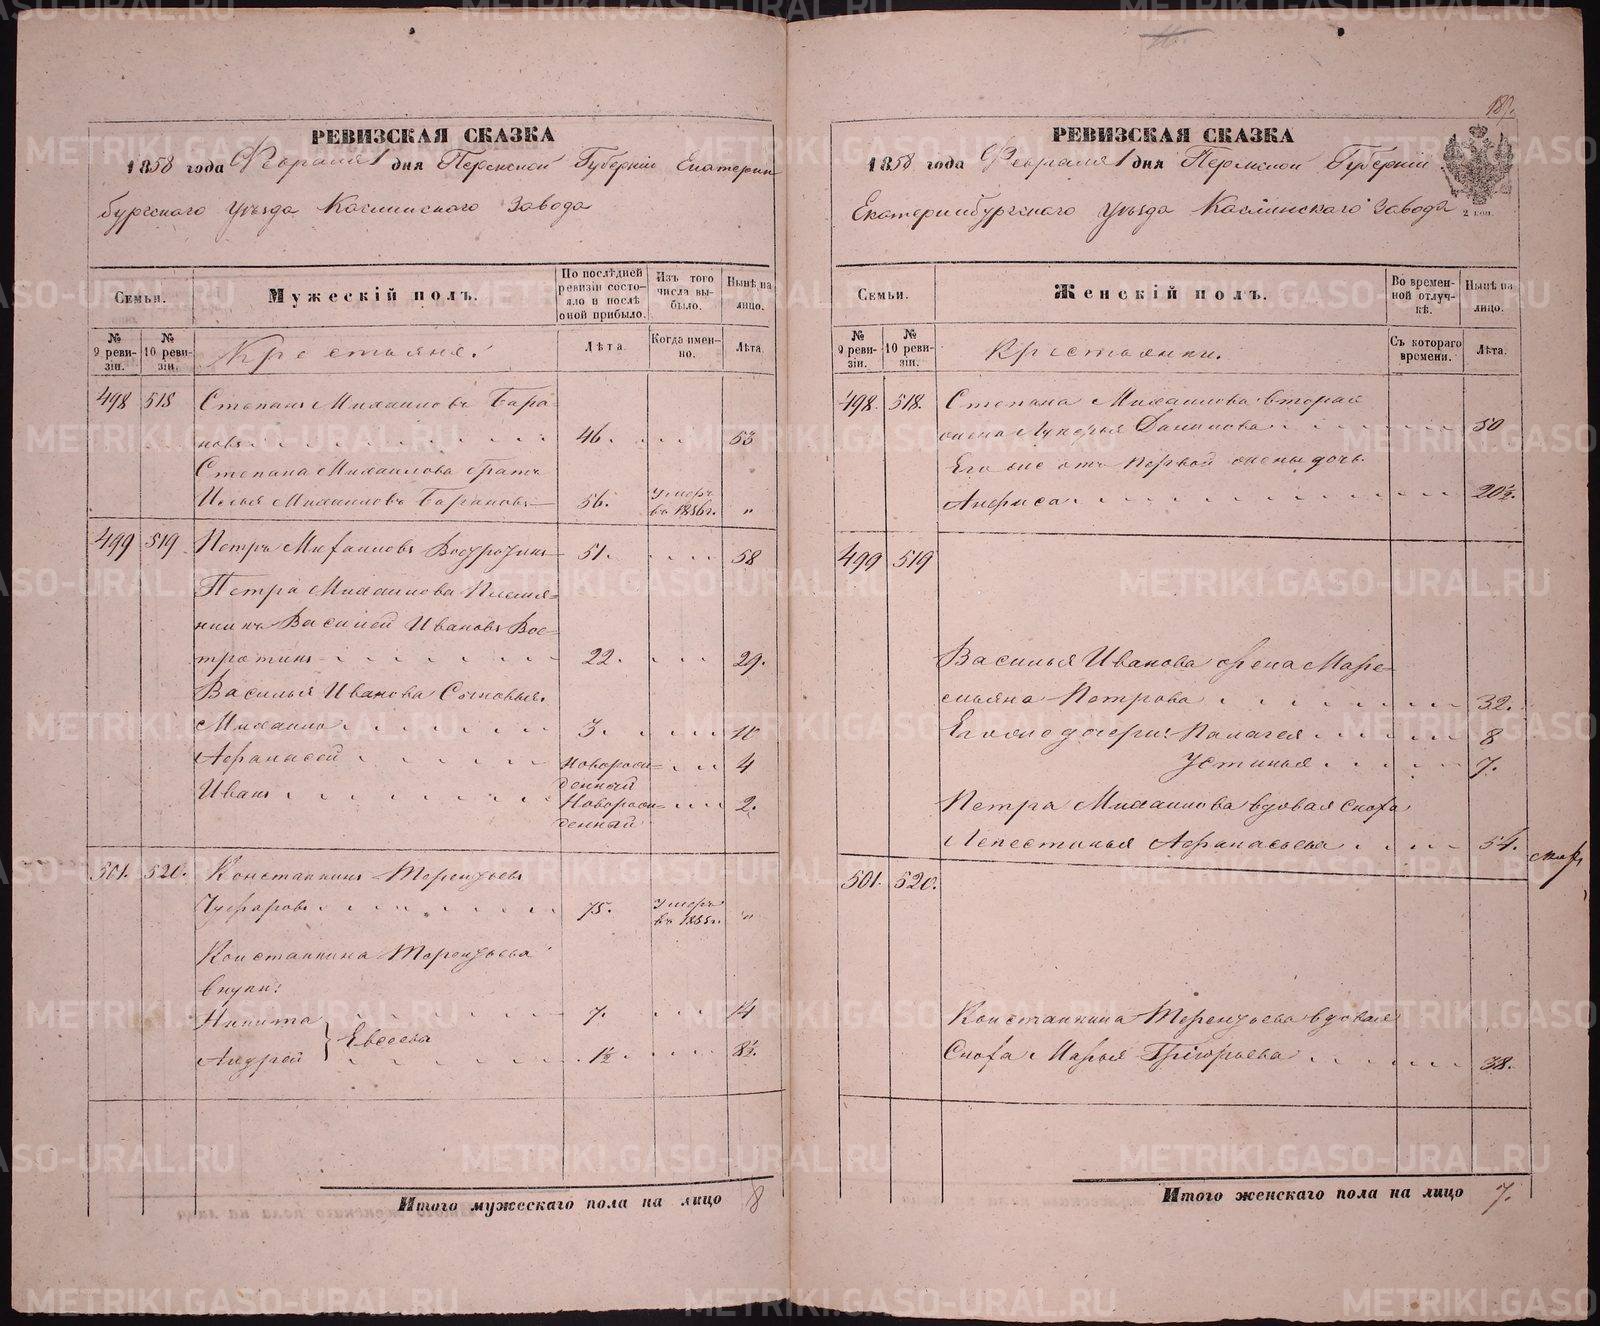 РЕВИЗСКАЯ СКАЗКА
1858 года Февраля 1 дня Пермской Губерніи Екатерин
бургского уѣзда Каслинского Завода
Семьи.
Мужескій полъ.
По послѣдней ревизіи состояло и послѣ оной прибыло.
Изъ того числа выбыло.
Нынѣ на лицо.
№ 9 ревизіи.
№ 10 ревизіи.
Крестьяне.
Лѣта.
Когда именно.
Лѣта.
498 518 Степанъ Михаиловъ Бара-
новъ 46. 53
Степана Михаилова братъ
Илья Михаиловъ Барановъ 56. умеръ въ 1856 г. "
499 519 Петръ Михаиловъ Востротинъ 51. 58
Петра Михаилова Племя-
нникъ Василей Ивановъ Вос-
тротинъ 22. 29.
Василья Иванова Сыновья.
Михаило 3. 10
Афанасей Новорожденный 4
Иванъ Новорожденный 2.
501. 520. Константинъ Терентьевъ
75. умеръ въ 1855 г. "
Константина Терентьева
внуки:
Никита 7. 14
Евсеева
Андрей 1½ 8½.
Итого мужескаго пола на лицо 8
189.
РЕВИЗСКАЯ СКАЗКА
1858 года Февраля 1 дня Пермской Губерніи
Екатеринбургского уѣзда Каслинского Завода
2 коп.
Семьи.
Женскій полъ.
Во временной отлучкѣ.
Нынѣ на лицо.
№ 9 ревизіи.
№ 10 ревизіи.
Крестьянки.
Съ котораго времени.
Лѣта.
498. 518. Степана Михаилова вторая
жена Лукерья Данилова 50
Его же отъ первой жены дочь
Анфиса 20½.
499 519
Василья Иванова жена Маре-
мьяна Петрова 32.
Его же дочери: Палагея 8
Устинья 7.
Петра Михаилова вдовая сноха
Афанасьева 54.
501. 520.
Константина Терентьева вдовая
Сноха Марья Григорьева 38.
Итого женскаго пола на лицо 7.
METRIKI.GASO-URAL.RU